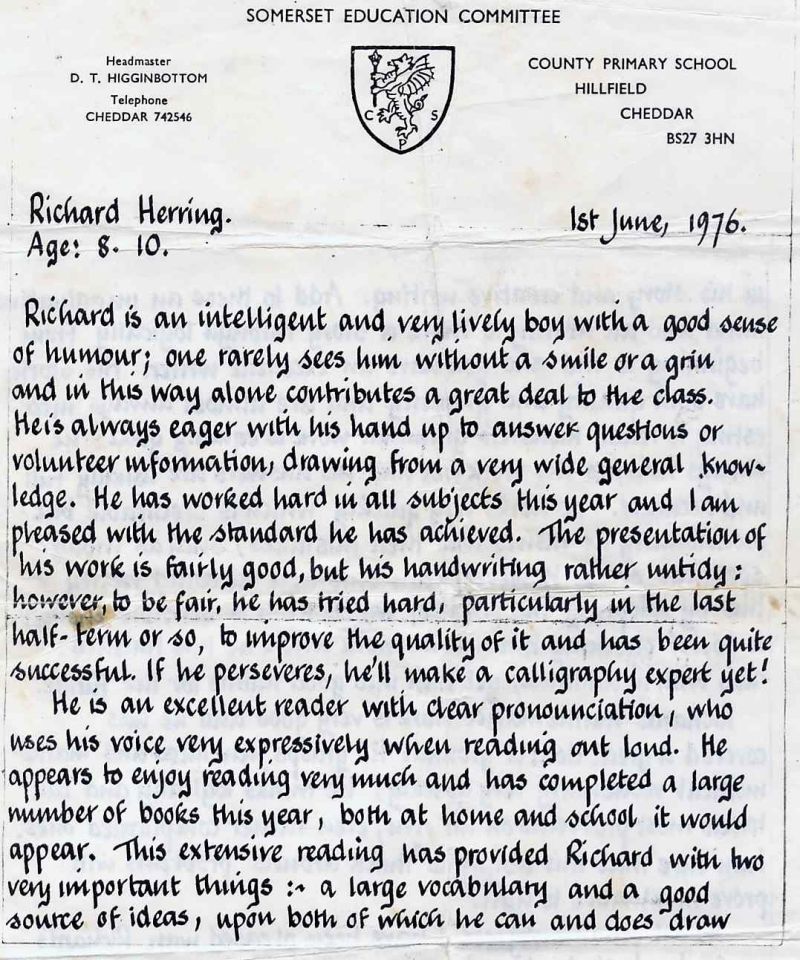 SOMERSET EDUCATION COMMITTEE
Headmaster
D. T. HIGGINBOTTOM
Telephone
CHEDDAR 742546
C S
P
COUNTY PRIMARY SCHOOL
HILLFIELD
CHEDDAR
BS27 3HN
Richard Herring.
1st June, 1976.
Age: 8. 10.
Richard is an intelligent and very lively boy with a good sense
of humour; one rarely sees him without a smile or a grin
and in this way alone contributes a great deal to the class.
He is always eager with his hand up to answer questions or
volunteer information, drawing from a very wide general know-
ledge. He has worked hard in all subjects this year and I am
pleased with the standard he has achieved. The presentation of
his work is fairly good, but his handwriting rather untidy:
however, to be fair, he has tried hard, particularly in the last
half-term or so, to improve the quality of it and has been quite
successful. If he perseveres, he'll make a calligraphy expert yet!
He is an excellent reader with clear pronounciation, who
uses his voice very expressively when reading out loud. He
appears to enjoy reading very much and has completed a large
number of books this year, both at home and school it would
appear. This extensive reading has provided Richard with two
very important things :- a large vocabulary and a good
source of ideas, upon both of which he can and does draw